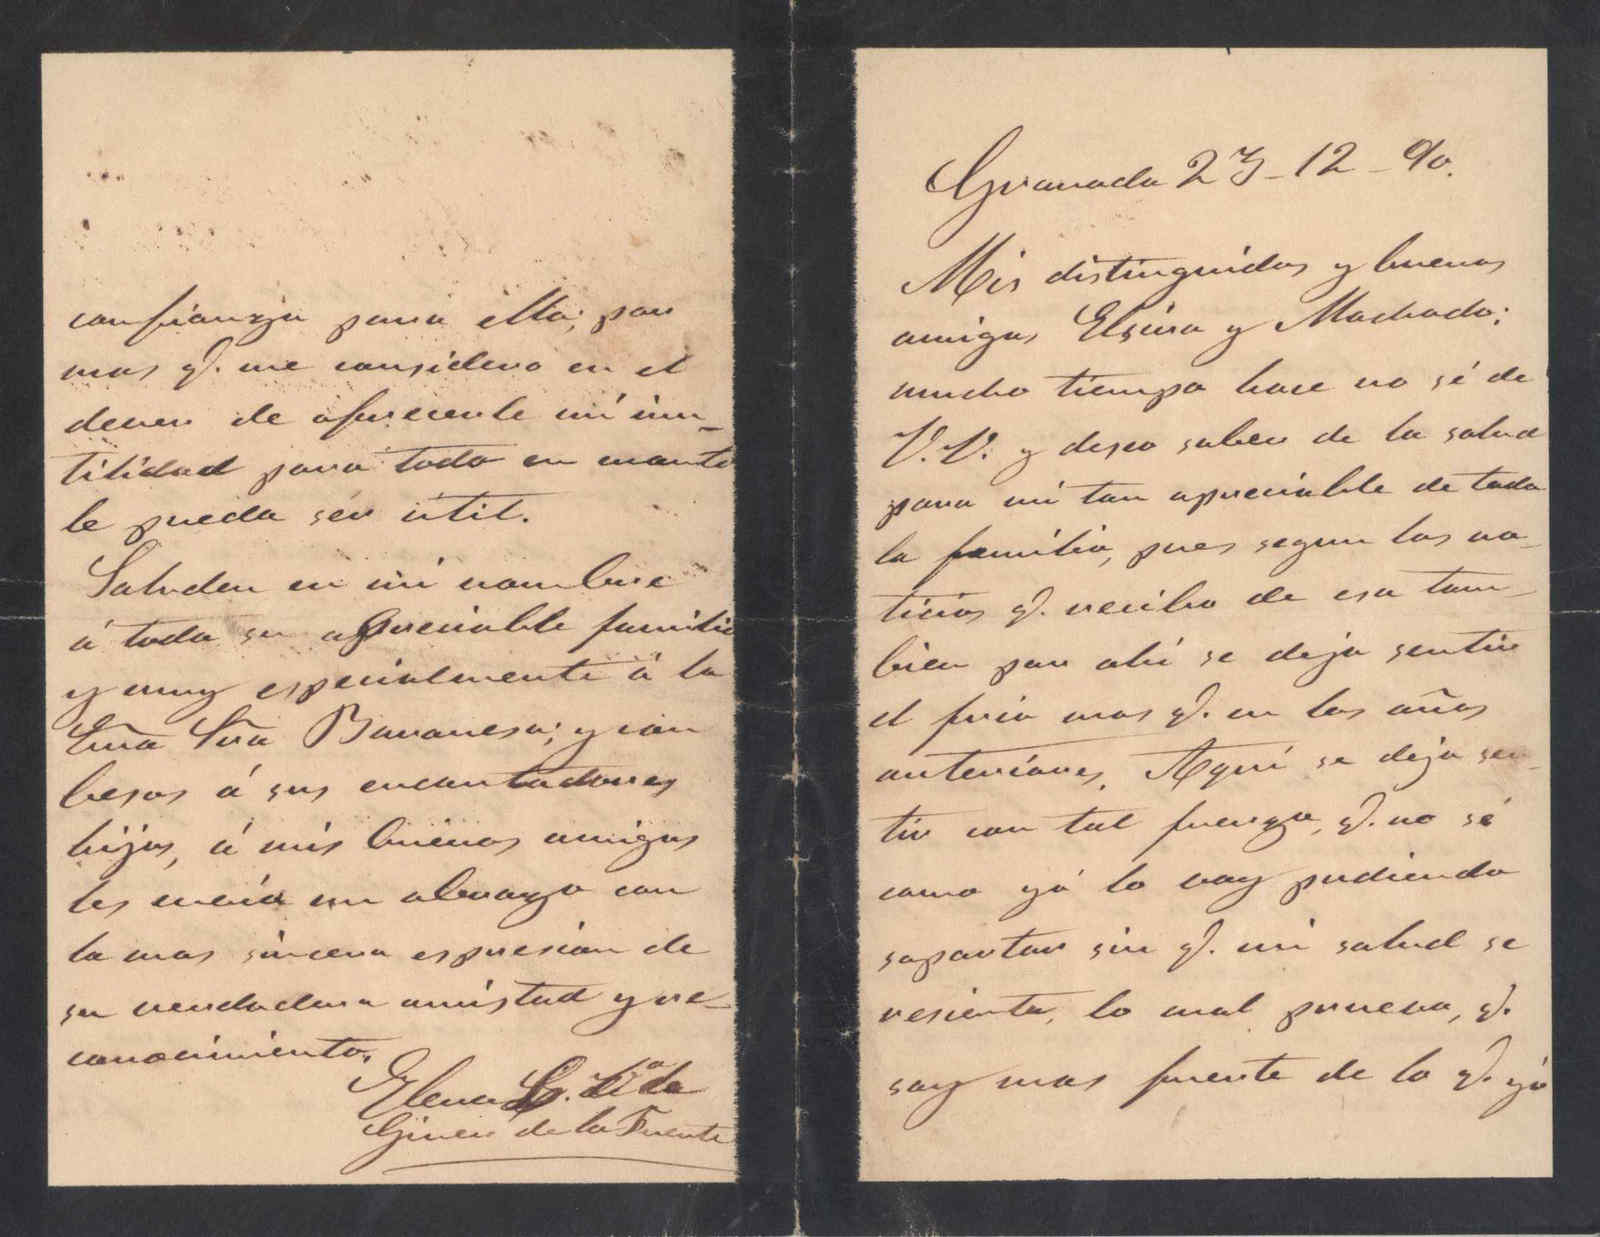 Granada 23-12-90.
Mis distinguidos y buenos
amigos Elvira y Machado;
mucho tiempo hace no sé de
V.V. y deseo saber de la salud
para mi tan apreciable de toda
la familia, pues segun las no-
ticias q. recibo de esa tam-
bien por ahí se deja sentir
el frio mas q. en los años
anteriores. Aquí se deja sen-
tir con tal fuerza, q. no sé
como yó lo voy pudiendo
soportar sin q. mi salud se
resienta, lo cual prueva, q.
soy mas fuerte de lo q. yó
confianza para ello; por
mas q. me considero en el
dever de ofrecerle mi inu-
tilidad para todo en cuanto
le pueda sér útil.
Saluden en mi nombre
á toda su apreciable familia
y muy especialmente á la
Sra Baronesa; y con
besos á sus encantadores
hijos, á mis buenos amigos
les envía un abrazo con
la mas sincera espresion de
su verdadera amistad y re-
conocimiento.
Elena L. Vda de
Giner de la Fuente